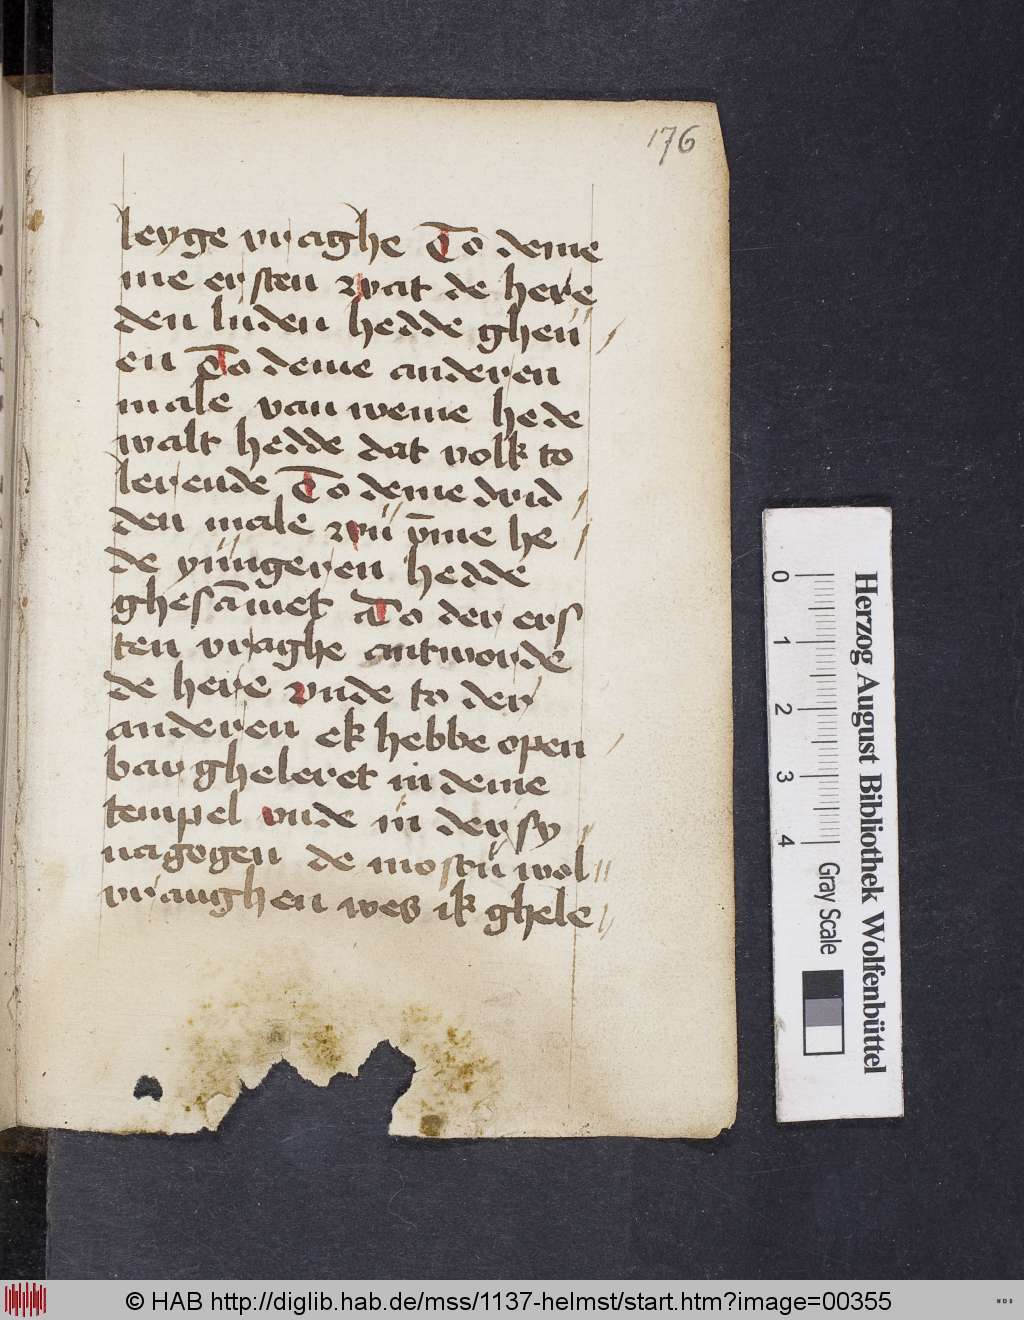 176
leyge vraghe To deme
me ersten wat de here
den luden hedde gheu̅
en To deme anderen
male van weme hede
walt hedde dat volk to
lerende To deme drid
den male wu̅ v̅me he
de yu̅ngeren hedde
ghesa̅met To der ers
ten vraghe antworde
de here vnde to der
anderen ek hebbe open
bar gheleret in deme
tempel vnde in der sy
nagogen de moste̅ wol
vraughen wes ik ghele
0
1
2
3
4
Gray Scale
Herzog August Bibliothek Wolfenbüttel
© HAB http://diglib.hab.de/mss/1137-helmst/start.htm?image=00355